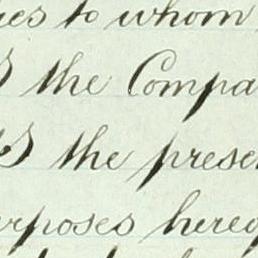 ies to whom
the Compa
the prese
urposes hereo